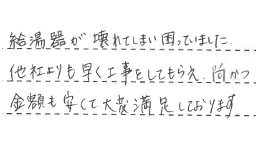 給湯器が壊れてしまい困っていました。
他社よりも早く工事をしてもらえ、尚かつ
金額も安くて大変満足しております